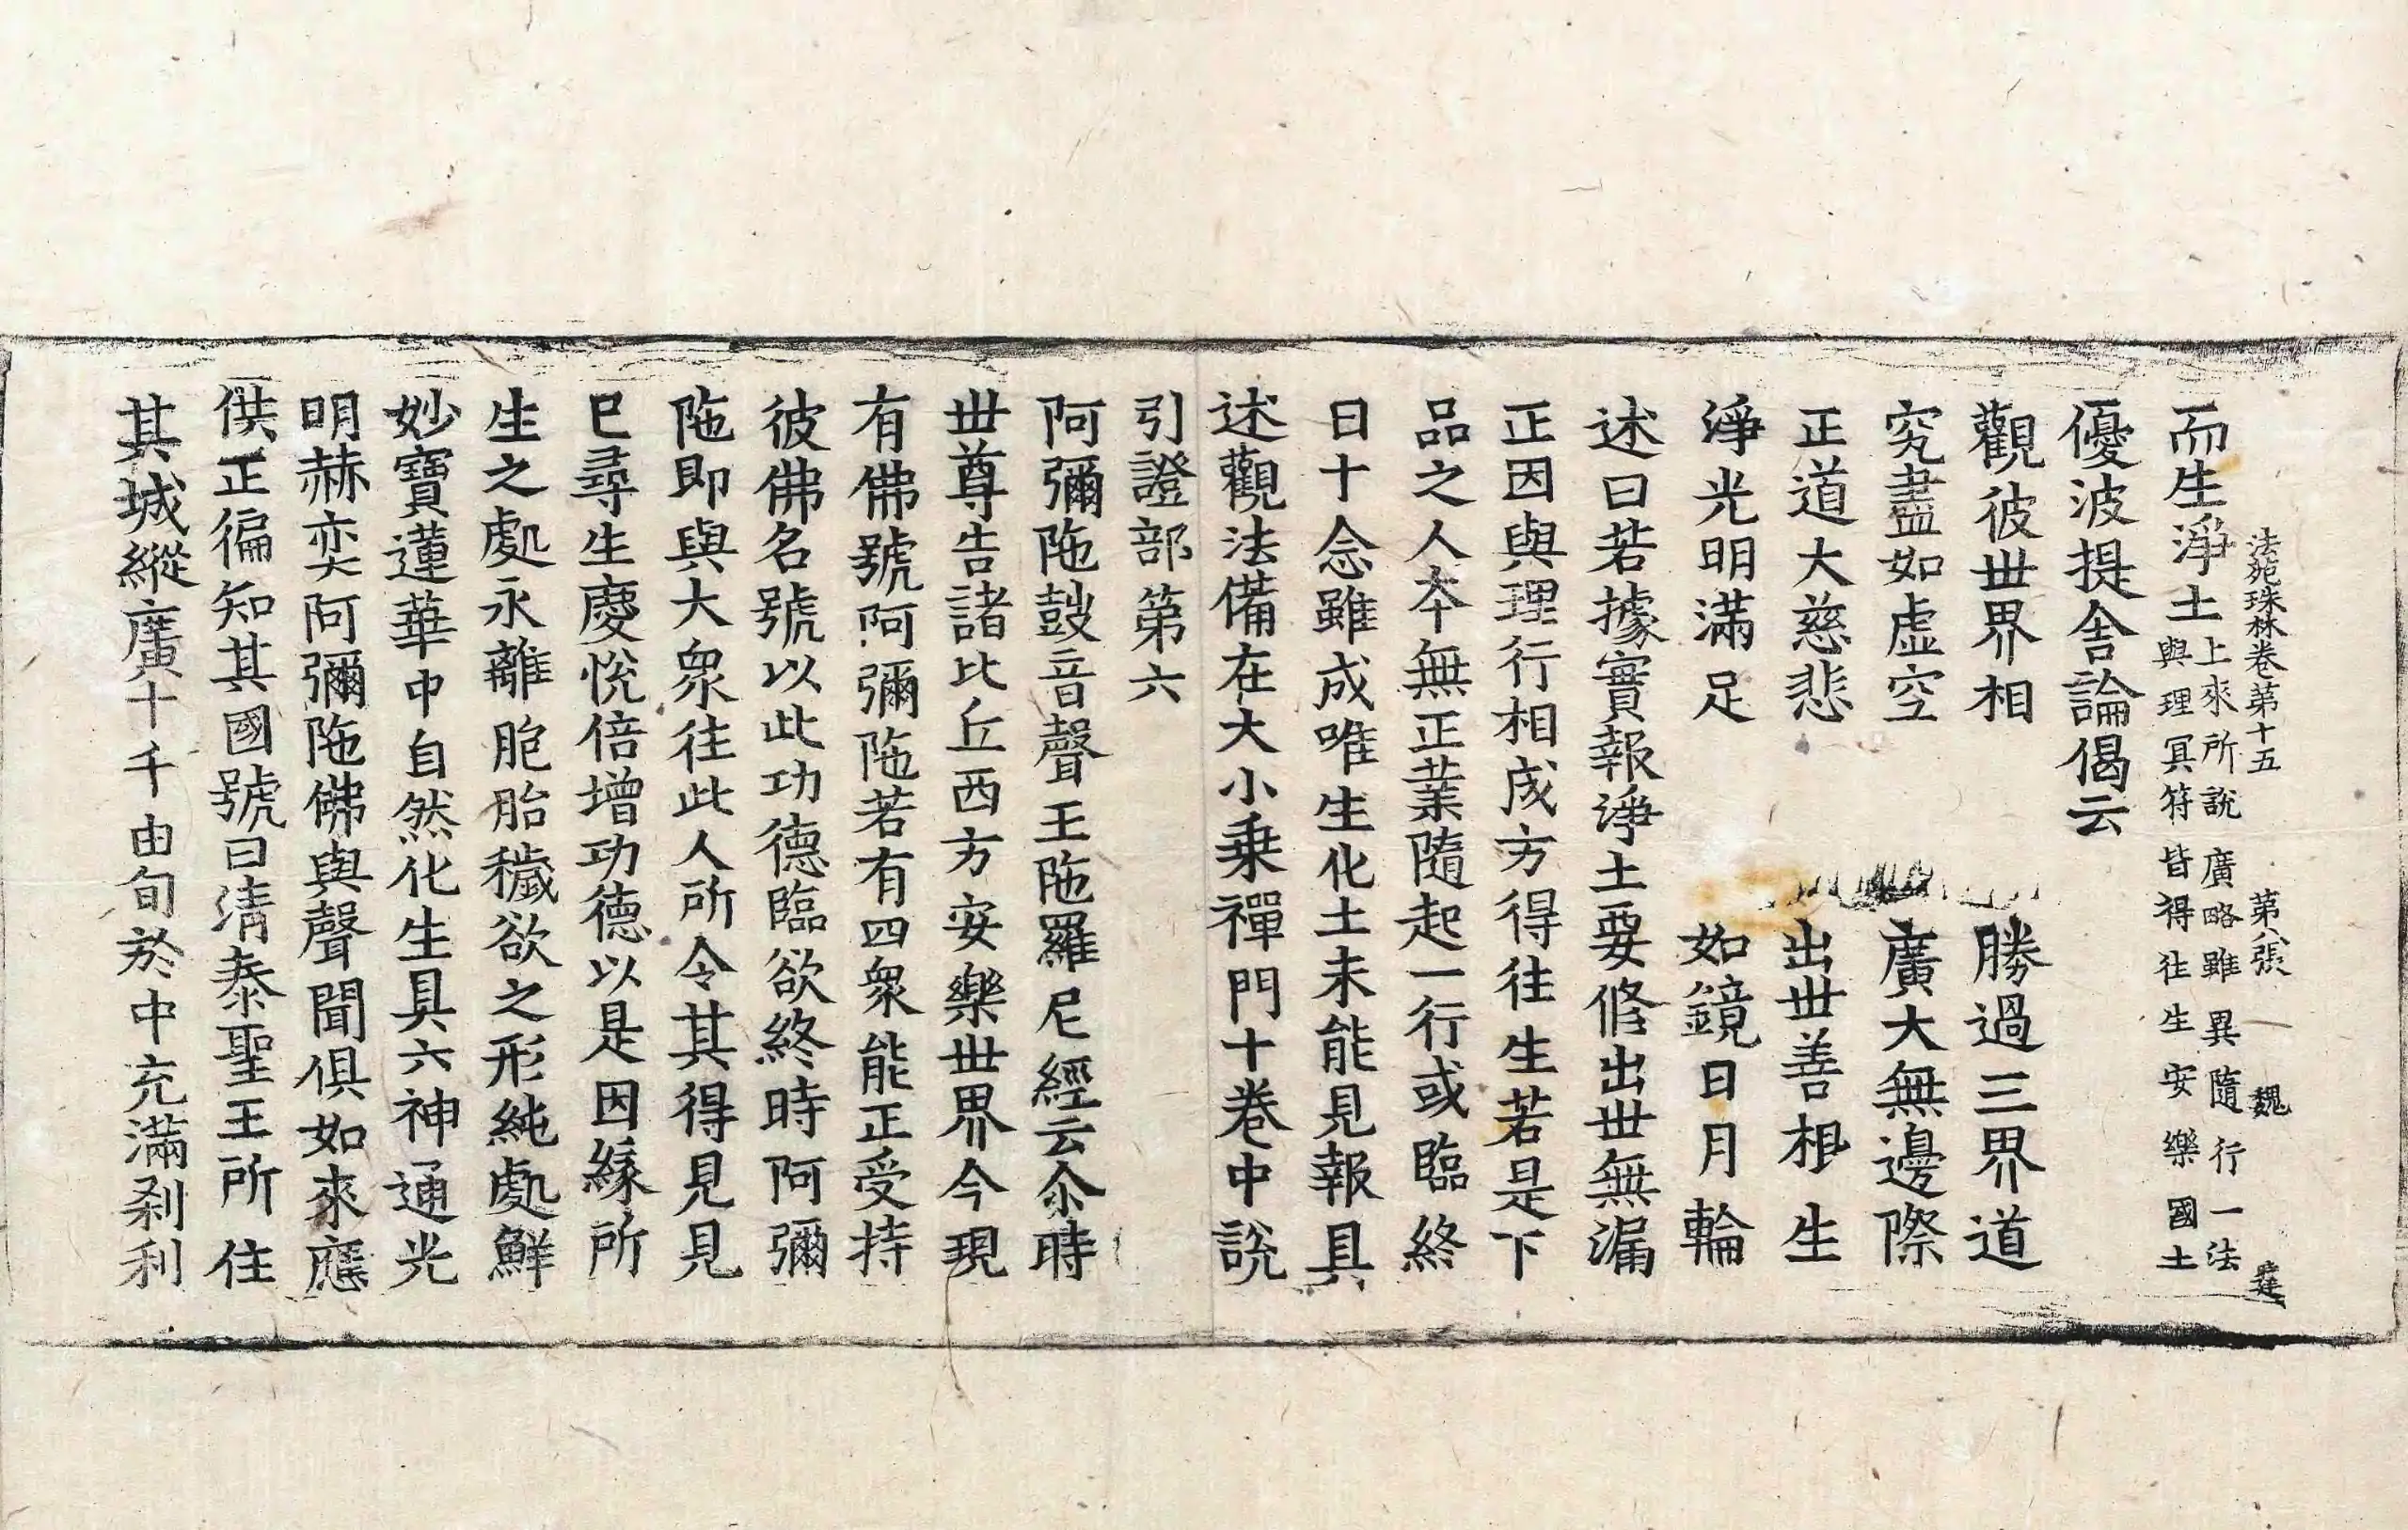 法苑珠林卷第十五　第八張　魏　㢟
而生淨土上來所說廣略雖異隨行一法
與理冥符皆得往生安樂國土
優波提舍論偈云
觀彼丗界相　勝過三界道
究盡如虛空　廣大無邊際
正道大慈悲　出丗善根生
淨光明滿足　如鏡日月輪
述曰若據實報淨土要修出丗無漏
正因與理行相成方得往生若是下
品之人夲無正業隨起一行或臨終
日十念雖成唯生化土未能見報具
述觀法備在大小乗禪門十卷中說
引證部第六
阿彌陁鼓音聲王陁羅尼經云尒時
丗尊告諸比丘西方安樂丗界今現
有佛號阿彌陁若有四衆能正受持
彼佛名號以此功德臨欲終時阿彌
陁即與大衆往此人所令其得見見
已尋生慶悅倍增功德以是因緣所
生之處永離胞胎穢欲之形純處鮮
妙寶蓮華中自然化生具六神通光
明赫奕阿彌陁佛與聲聞俱如來應
供正徧知其國號曰清泰聖王所住
其城縱廣十千由旬於中充滿剎利